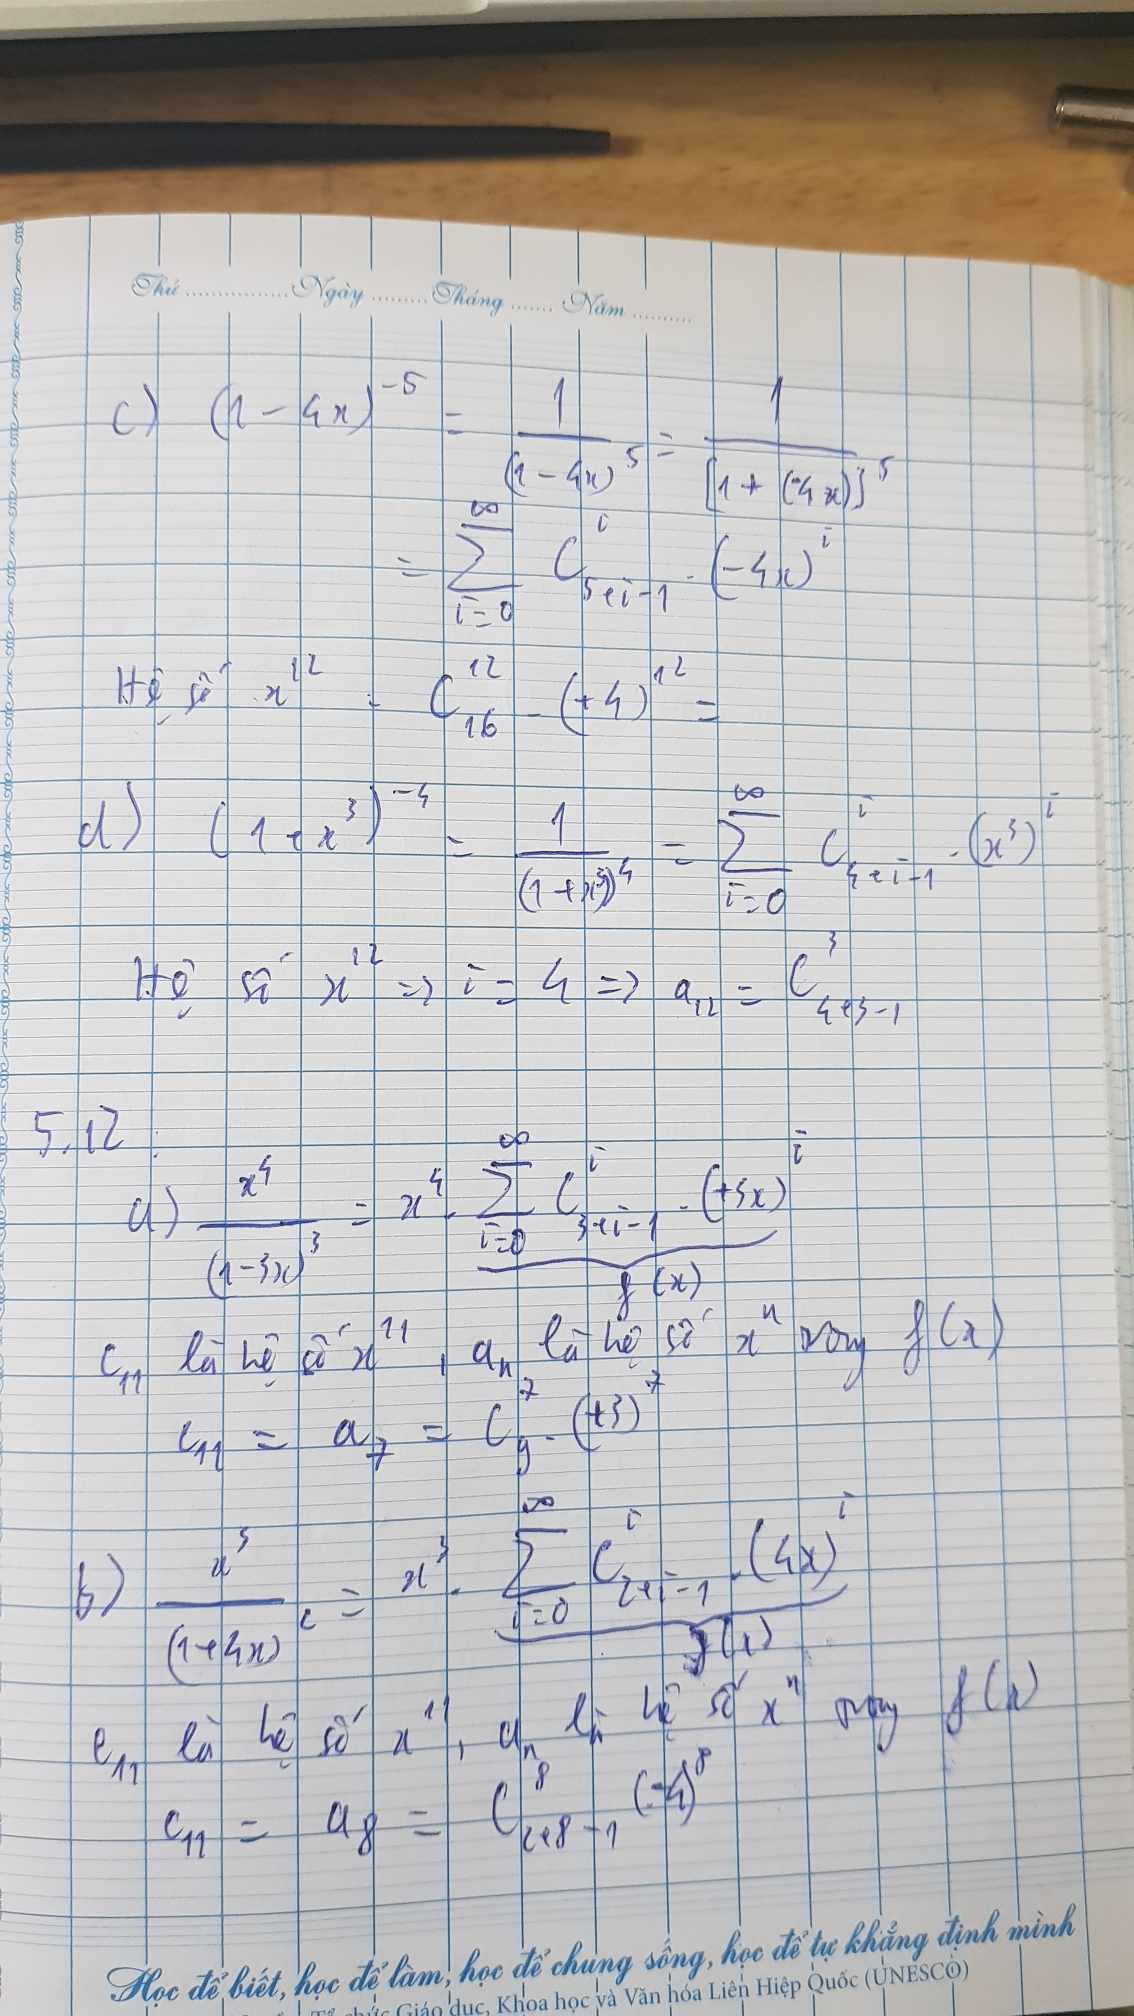 Thứ ................ Ngày ......... Tháng ....... Năm ..........
c) (1 - 4x)^{-5} = \frac{1}{(1 - 4x)^5} = \frac{1}{[1 + (-4x)]^5}
= \sum_{i=0}^{∞} C_{5+i-1}^{i} . (-4x)^i
Hệ số x^{12} = C_{16}^{12} . (+4)^{12} =
d) (1 + x^3)^{-4} = \frac{1}{(1+x^3)^4} = \sum_{i=0}^{∞} C_{4+i-1}^{i} . (x^3)^i
Hệ số x^{12} => i = 4 => a_{12} = C_{4+3-1}^{3}
5.12 :
a) \frac{x^4}{(1-3x)^3} = x^4 . \sum_{i=0}^{∞} C_{3+i-1}^{i} . (+3x)^i
f(x)
c_{11} là hệ số x^{11}, a_n là hệ số x^n trong f(x)
c_{11} = a_7 = C_9^7 . (+3)^7
b) \frac{x^3}{(1+4x)^2} = x^3 . \sum_{i=0}^{∞} C_{2+i-1}^{i} . (4x)^i
f(x)
c_{11} là hệ số x^{11}, a_n là hệ số x^n trong f(x)
c_{11} = a_8 = C_{2+8-1}^{8} (-4)^8
Học để biết, học để làm, học để chung sống, học để tự khẳng định mình
Tổ chức Giáo dục, Khoa học và Văn hóa Liên Hiệp Quốc (UNESCO)